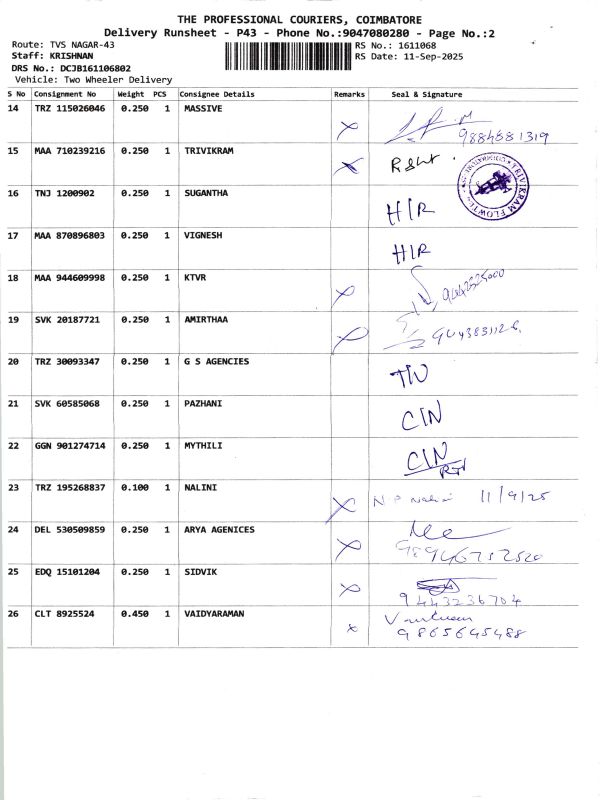 THE PROFESSIONAL COURIERS, COIMBATORE
Delivery Runsheet - P43 - Phone No.:9047080280 - Page No.:2
Route: TVS NAGAR-43 RS No.: 1611068
Staff: KRISHNAN RS Date: 11-Sep-2025
DRS No.: DCJB161106802
Vehicle: Two Wheeler Delivery
S No Consignment No Weight PCS Consignee Details Remarks Seal & Signature
14 TRZ 115026046 0.250 1 MASSIVE
15 MAA 710239216 0.250 1 TRIVIKRAM
16 TNJ 1200902 0.250 1 SUGANTHA H/R
17 MAA 870896803 0.250 1 VIGNESH H/R
18 MAA 944609998 0.250 1 KTVR
19 SVK 20187721 0.250 1 AMIRTHAA
20 TRZ 30093347 0.250 1 G S AGENCIES
21 SVK 60585068 0.250 1 PAZHANI C/N
22 GGN 901274714 0.250 1 MYTHILI C/N
23 TRZ 195268837 0.100 1 NALINI N P Nalini 11/9/25
24 DEL 530509859 0.250 1 ARYA AGENICES
25 EDQ 15101204 0.250 1 SIDVIK
9443236704
26 CLT 8925524 0.450 1 VAIDYARAMAN
9865645488